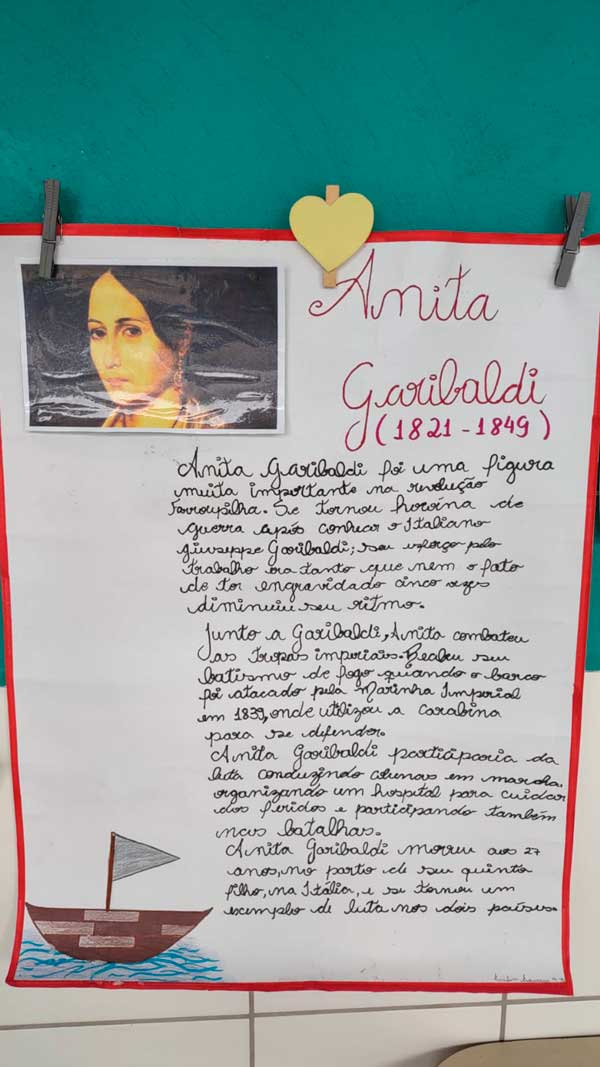 Anita
Garibaldi
(1821 - 1849)
Anita Garibaldi foi uma figura
muita importante na revolução
Farroupilha. Se tornou heroína de
guerra após conhecer o Italiano
giuseppe Garibaldi; seu esforço pelo
trabalho era tanto que nem o fato
de ter engravidado cinco vezes
diminuiu seu ritmo.
Junto a Garibaldi, Anita combateu
as tropas imperiais. Recebeu seu
batismo de fogo quando o barco
foi atacado pela Marinha Imperial
em 1839, onde utilizou a carabina
para se defender.
Anita Garibaldi participaria da
luta conduzindo colunas em marcha,
organizando um hospital para cuidar
dos feridos e participando também
nas batalhas.
Anita Garibaldi morreu aos 27
anos, no parto de seu quinto
filho, na Itália, e se tornou um
exemplo de luta nos dois países.